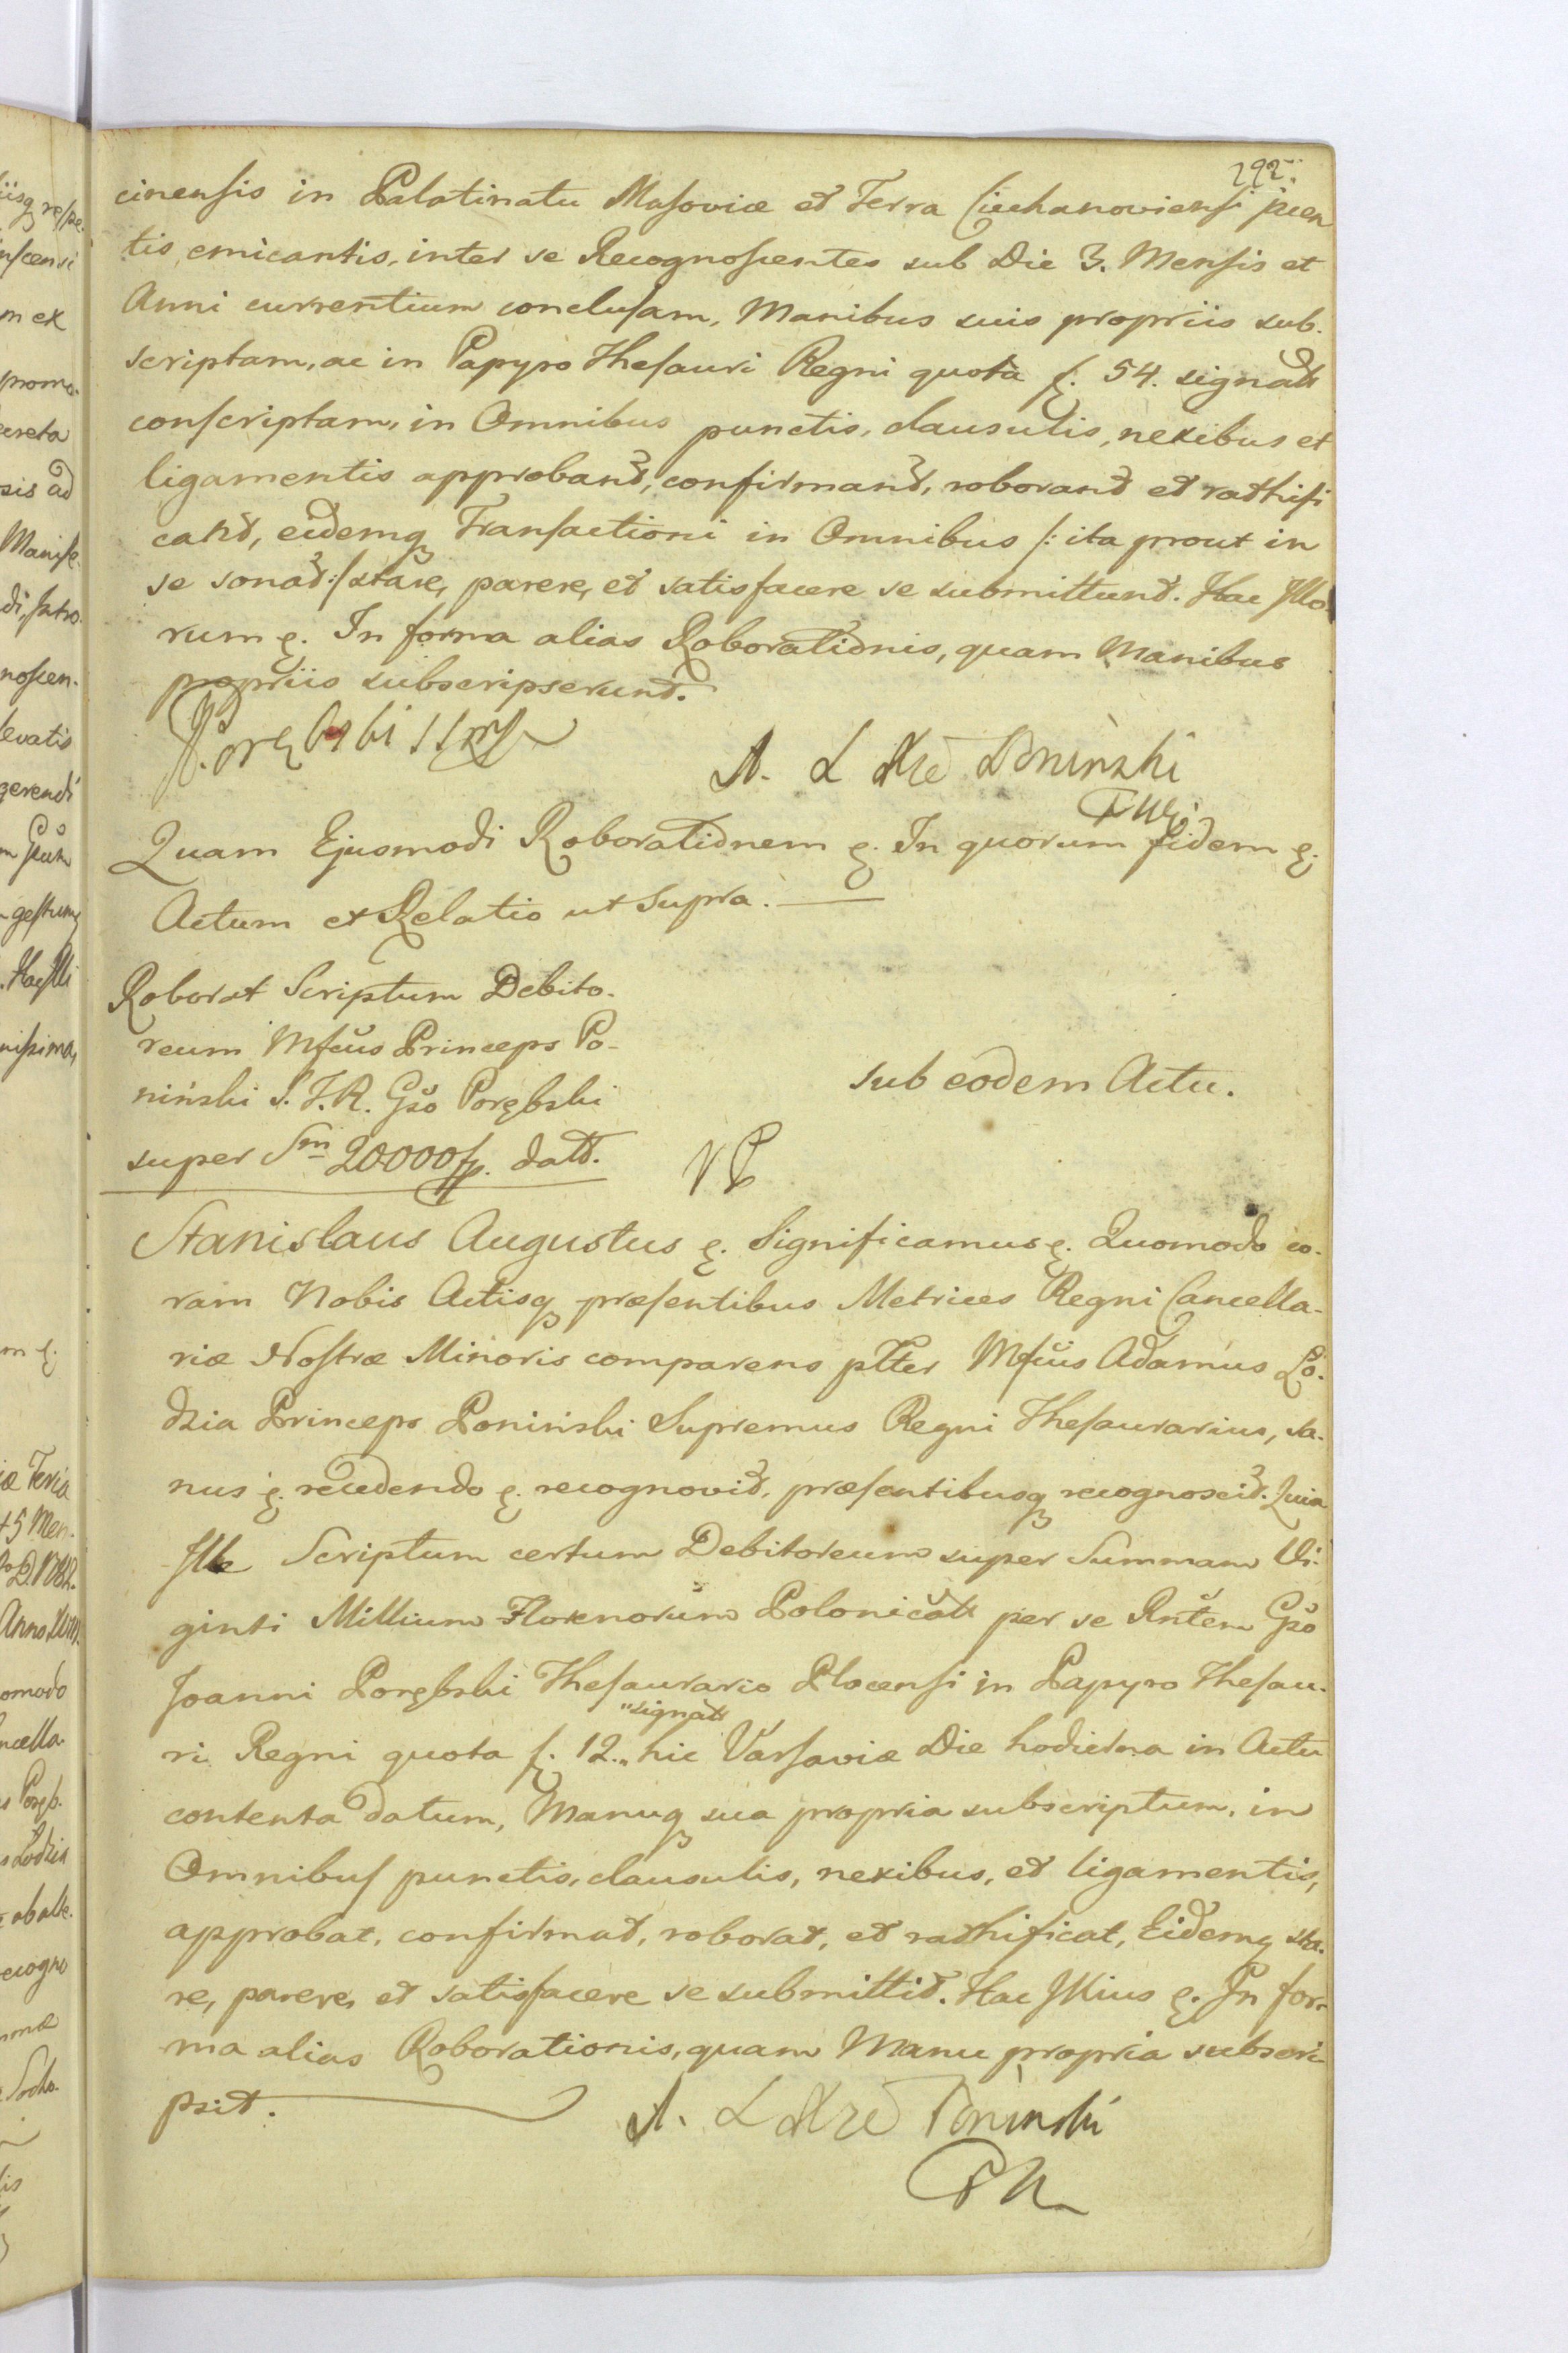 292.
cinensis in Palatinatu Masoviæ et Terra Ciechanoviensi jacen
tis, emicantis, inter se Recognoscentes sub Die 3. Mensis et
Anni currentium conclusam, Manibus suis propriis sub.
scriptam, ac in Papyro Thesauri Regni quota f. 54. signat
conscriptam, in Omnibus punctis, clausulis, nexibus et
ligamentis approbant, confirmant, roborant et rathifi
cant, eidemq Transactioni in Omnibus /: ita prout in
se sonat :/ stare, parere, et satisfacere se submittunt. Hac Illo
rum ę. In forma alias Roborationis, quam Manibus
propriis subscripserunt.
Porębski
A. Ł Xże Poninski
Quam Ejusmodi Roborationem ę. In quorum fidem ę.
Actum et Relatio ut supra.
Roborat Scriptum Debito.
reum Mfcus Princeps Po-
niński S. T. R. Gso Porębski
super Sm 20000 fp. datt.
sub eodem Actu.
Stanislaus Augustus ę. Significamus ę. Quomodo co.
ram Nobis Actisq præsentibus Metrices Regni Cancella-
riæ Nostræ Minoris comparens pltter Mfcus Adamus Ło.
dzia Princeps Poniński Supremus Regni Thesaurarius, sa.
nus ę. recedendo ę. recognovit, præsentibusq recognoscit. Quia
Ille Scriptum certum Debitoreum super Summam Vi.
ginti Millium Florenorum Polonical per se Rntem Gso
Joanni Porębski Thesaurario Plocensi in Papyro Thesau.
"signat
ri Regni quota f. 12. " hic Varsaviæ Die hodierna in Actu
contenta datum, Manuq sua propria subscriptum, in
Omnibus punctis, clausulis, nexibus, et ligamentis,
approbat, confirmat, roborat, et rathificat, Eidemq sta.
re, parere, et satisfacere se submittit. Hac Illius ę. In for-
ma alias Roborationis, quam Manu propria subscri
psit.
A. Ł Xże Poninski